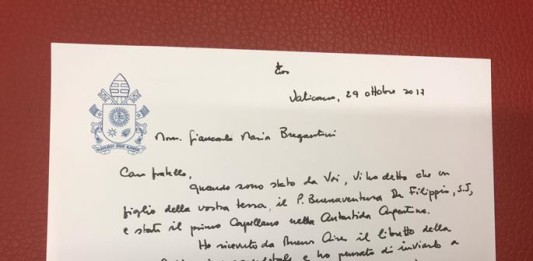 Vaticano, 29 ottobre 2017
Mons. Giancarlo Maria Bregantini
Caro fratello,
quando sono stato da Voi, vi ho detto che un
figlio della vostra terra, il P. Buenaventura De Filippis, S.J,
è stato il primo Capellano nella Antartida Argentina.
Ho ricevuto da Buenos Aires il libretto della
e ho pensato di inviarlo a